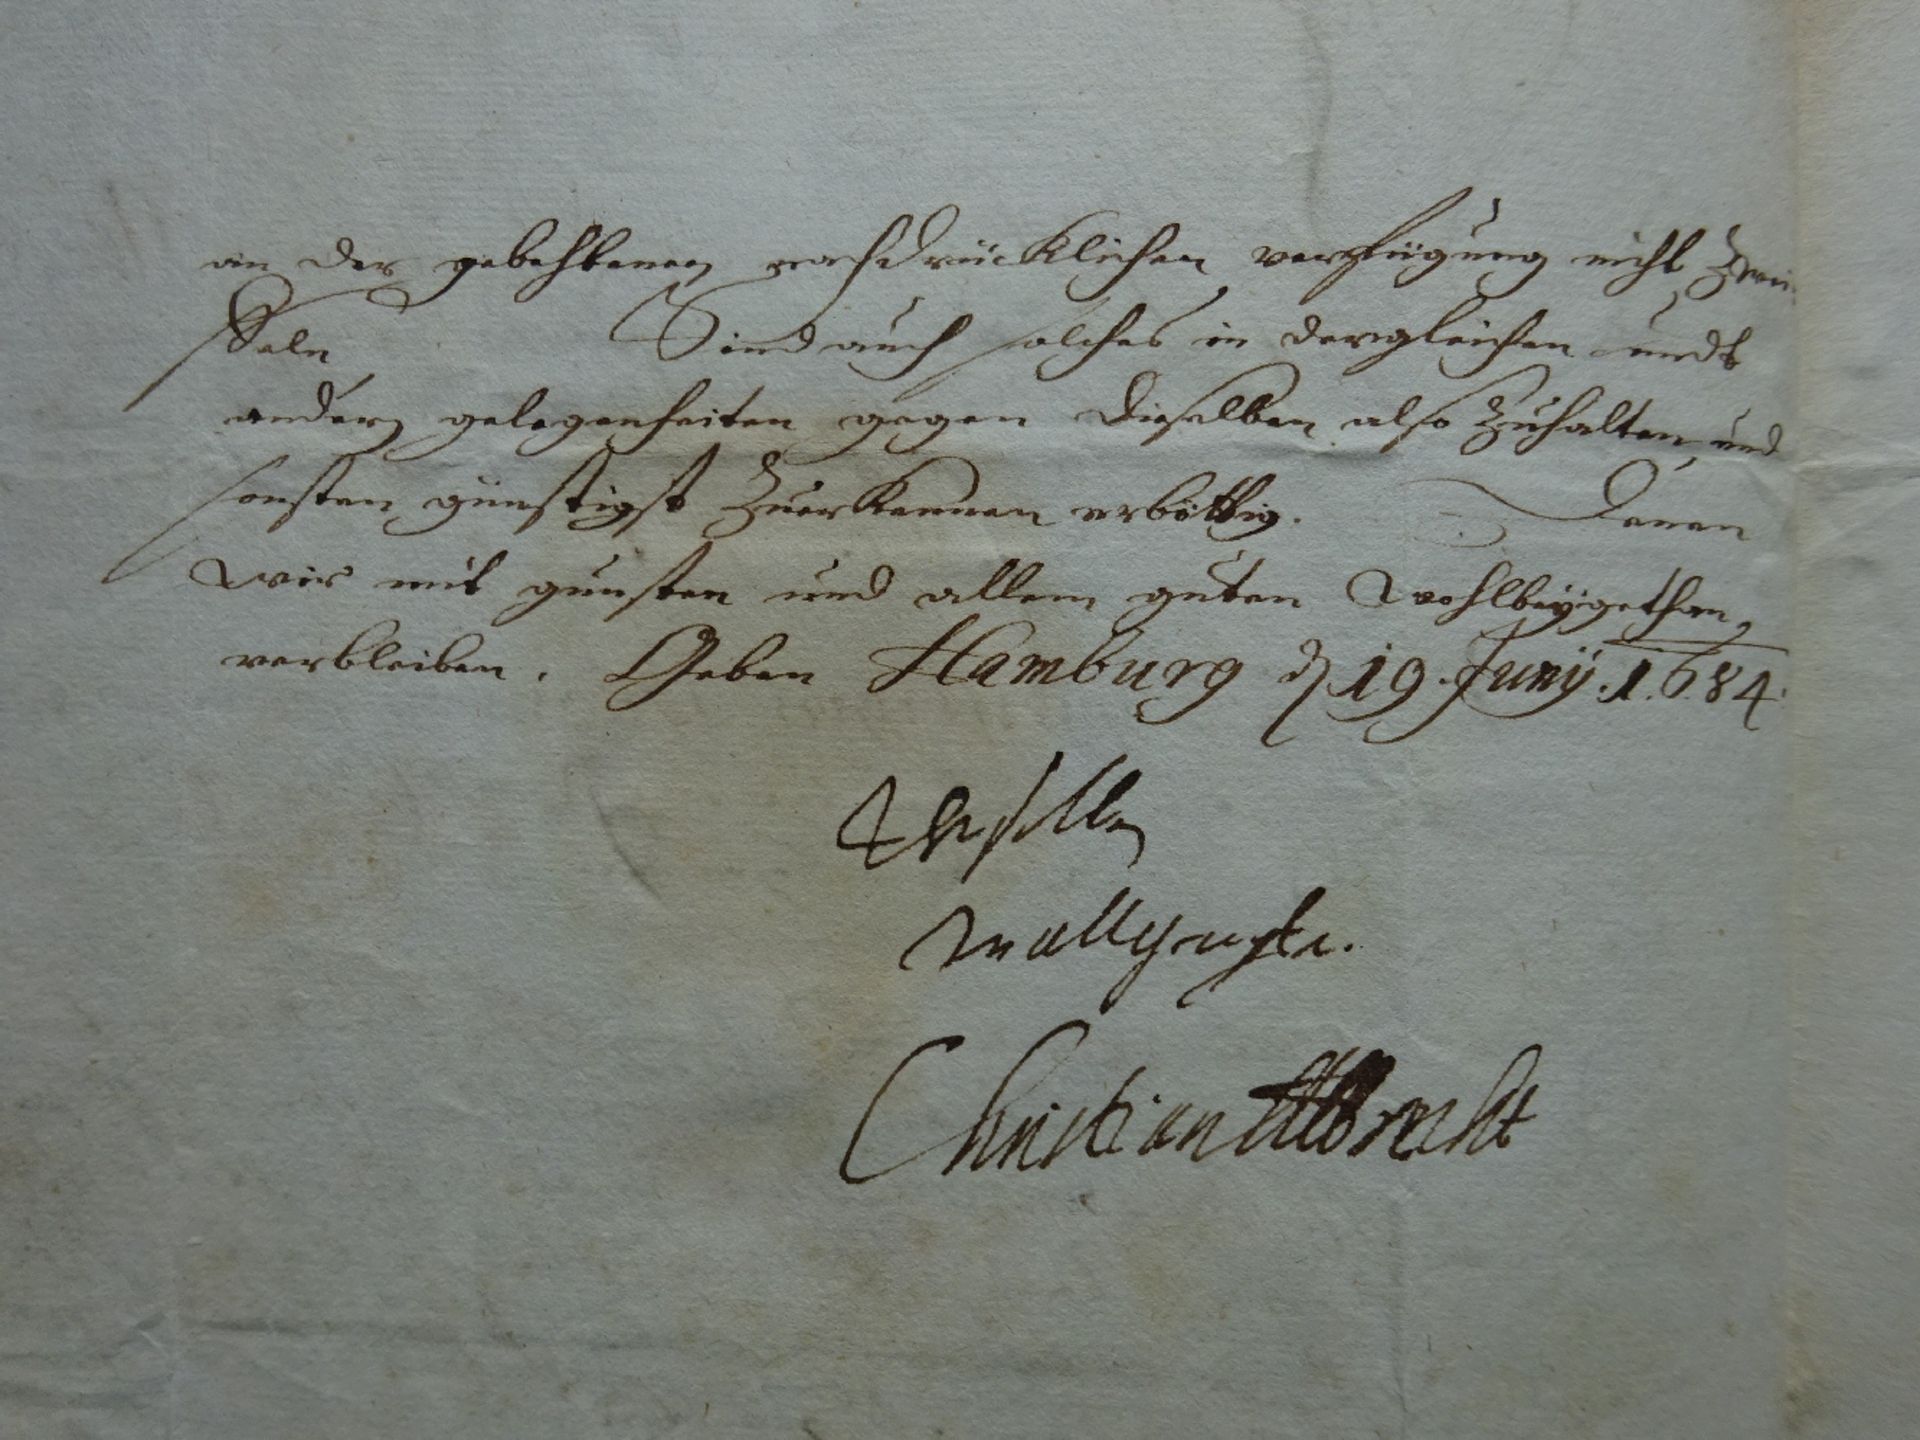 an der gebehtenen nachdrücklichen verfügung nicht Zwei
feln Sind auch solches in dergleichen undt
andern gelegenheiten gegen dieselben also Zuhalten, und
sonsten günstigst Zuerkennen erböttig. Denen
wir mit gunsten und allem guten wohlbeygethan
verbleiben. Geben Hamburg d 19. Junÿ. 1684.
Christian Albrecht